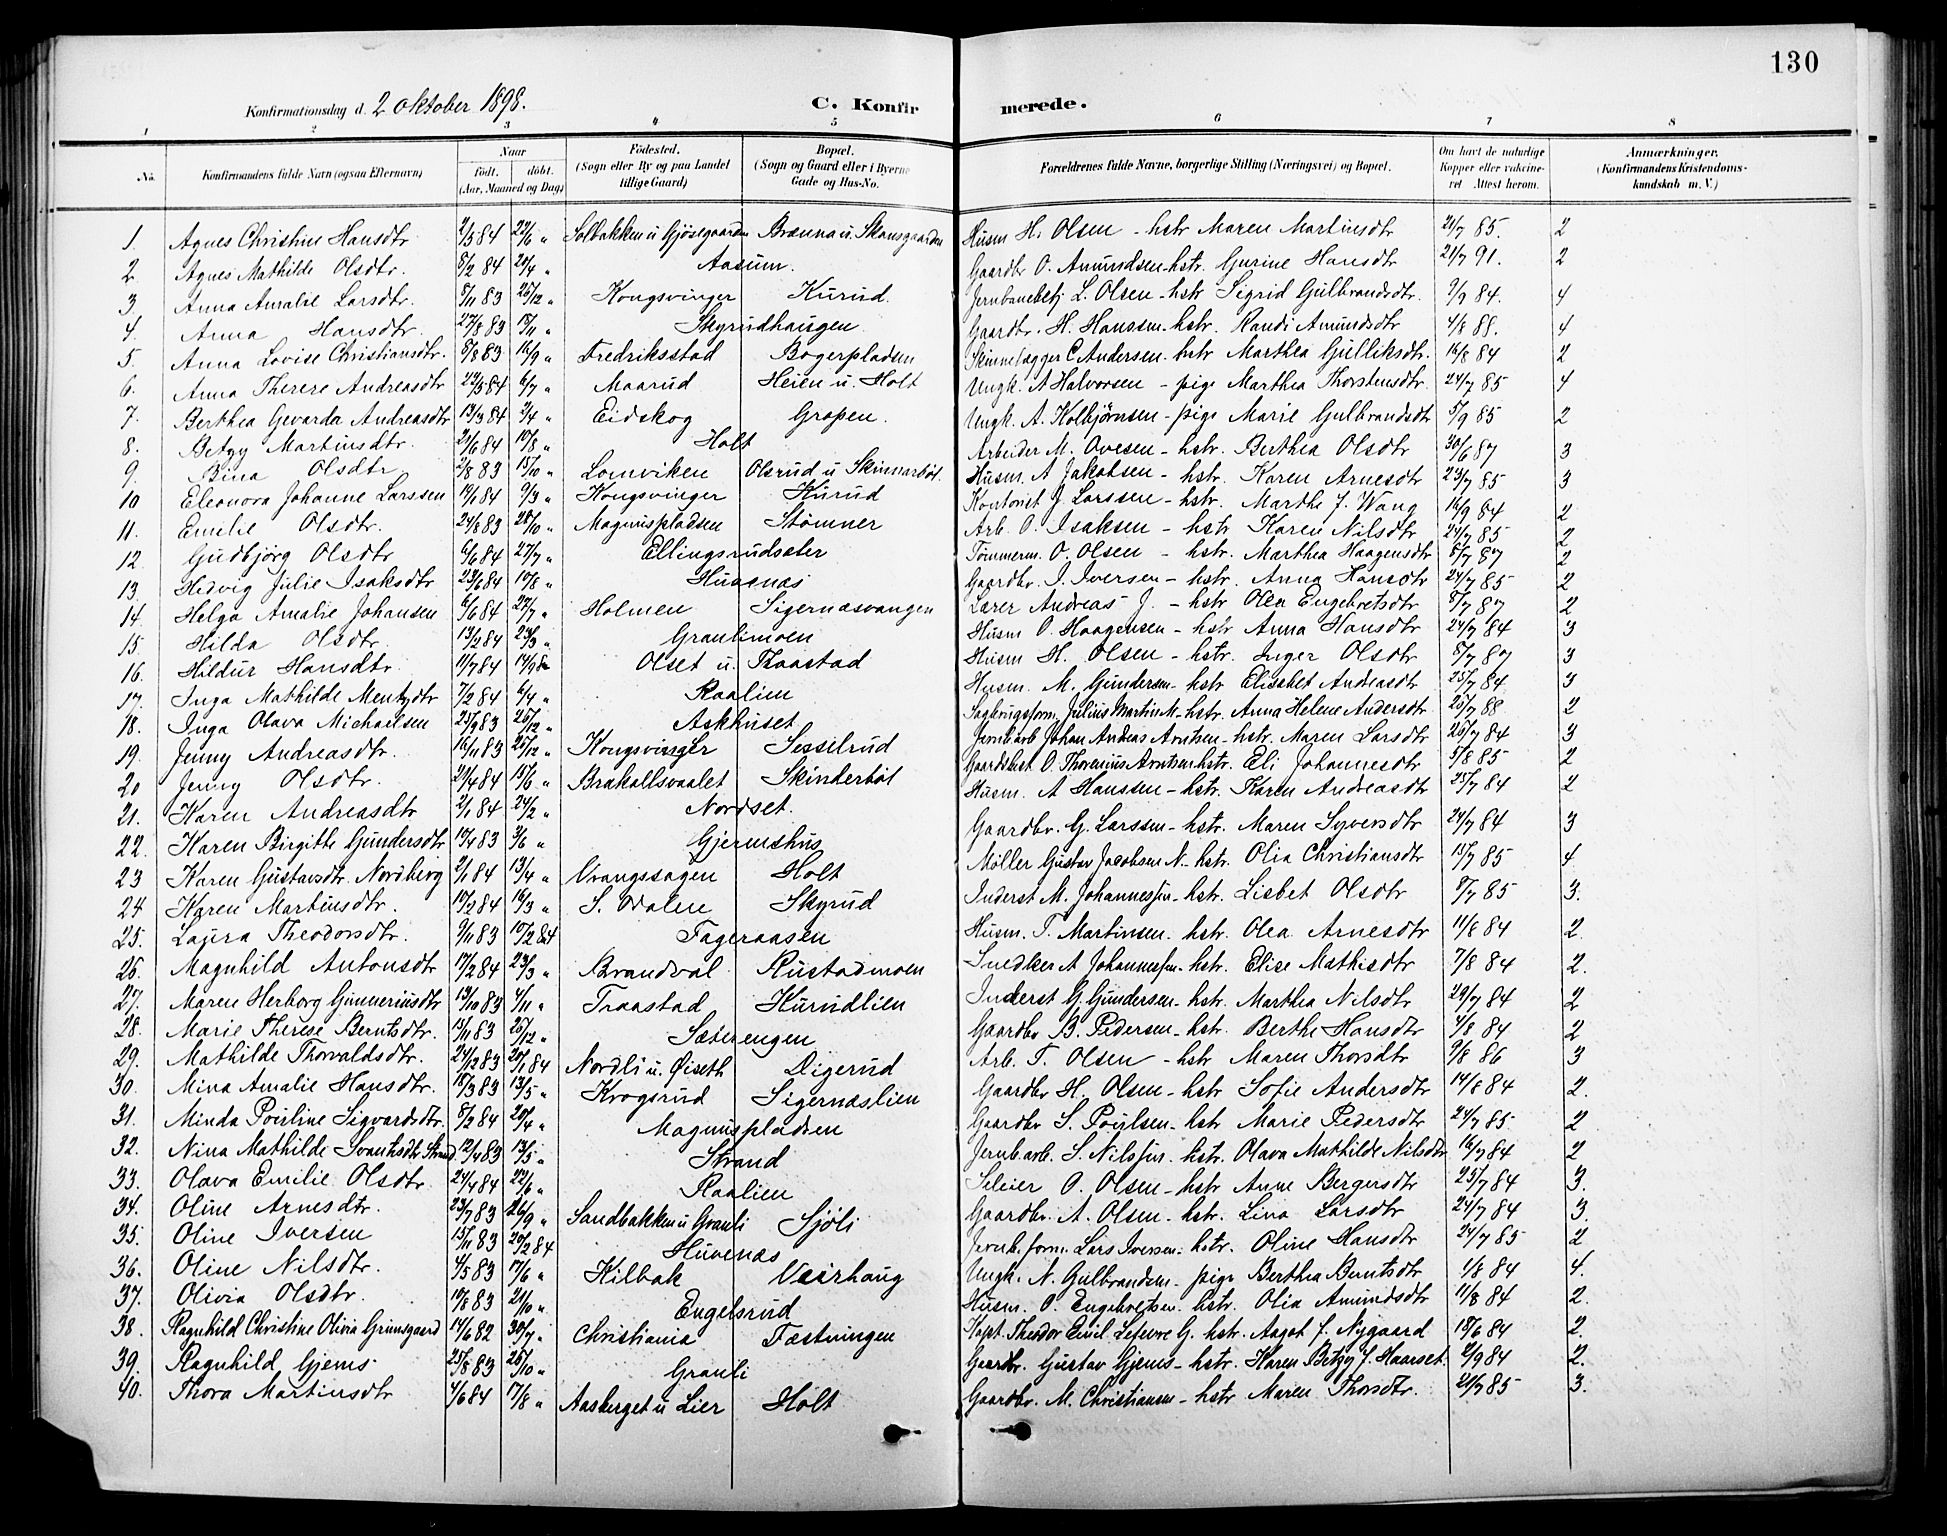 130
Konfirmationsdag d. 2 oktober 1898. C. Konfirmerede.
1 2 3 4 5 6 7 8
No. Konfirmandens fulde Navn (ogsaa Efternavn) Naar født. døbt. (Aar, Maaned og Dag) Fødested. (Sogn eller By og paa Landet tillige Gaard) Bopæl. (Sogn og Gaard eller i Byerne Gade og Hus-No. Forældrenes fulde Navne, borgerlige Stilling (Næringsvei) og Bopæl. Om havt de naturlige Kopper eller vakcineret Attest herom. Anmærkninger. (Konfirmandens Kristendomskundskab m. V.)
1. Agnes Christine Hansdtr 2/5 84 22/6 " Solbakken u Gjøsegaarden Brænna u. Skansgaarden Husm H. Olsen - hstr Maren Martinsdtr 21/7 85. 2
2. Agnes Mathilde Olsdtr. 8/2 84 20/4 " Aasum. Gaardbr O. Amundsen - hstr. Gurine Hansdtr 21/7 91. 2
3. Anna Amalie Larsdtr. 8/11 83 25/12 " Kongsvinger Kurud. Jernbanebetj L. Olsen - hstr Sigrid Gulbrandsdtr. 9/9 84. 4
4. Anna Hansdtr. 27/8 83 18/11 " Skyrudhaugen Gaardbr. H. Hanssen - hstr. Randi Amundsdtr 4/8 88. 4
5. Anna Lovise Christiansdtr. 8/8 83 16/9 " Fredriksstad Bogerpladsen Skinnelægger C Andersen - hstr Marthea Gulliksdtr. 16/8 84 2
6. Anna Therese Andreasdtr 22/5 84 6/7 " Maarud Heien u. Holt Ungk. A Halvorsen - pige Marthea Thorstensdtr. 24/7 85 4
7. Berthea Gevarda Andreasdtr 13/3 84 2/4 " Eidskog Gropen. Ungk. A. Kolbjørnsen - pige Marie Gulbrandsdtr 5/9 85 2
8. Betzy Martinsdtr. 21/6 84 10/8 " Holt Arbeider M. Ovesen - hstr. Berthea Olsdtr 30/6 87 3
9. Bina Olsdtr 2/8 83 15/10 " Lomviken Olsrud u Skinnarbøl. Husm. A Jakobsen - hstr. Karen Arnesdtr 23/7 85 3
10 Eleonora Johanne Larssen 19/1 84 9/3 " Kongsvinger Kurud Kontorist J. Larssen - hstr. Marthe f. Wang 16/9 84 2
11. Emilie Olsdtr. 24/8 83 28/10 " Magnuspladsen Stømner Arb. O. Isaksen - hstr Karen Nilsdtr 24/7 85 2
12. Gudbjørg Olsdtr 6/6 84 27/7 " Ellingsrudsæter Tømmerm. O. Olsen - hstr. Marthea Haagensdtr 8/7 87 2
13. Hedvig Julie Isaksdtr 23/6 84 10/8 " Huvenæs Gaardbr. I. Iversen - hstr. Anna Hansdtr 24/7 85 2
14. Helga Amalie Johansen 6/6 84 27/7 " Holmen Sigernæsvangen Lærer Andreas J. - hstr Olea Engebretsdtr 8/7 87 2
15. Hilda Olsdtr 13/2 84 23/3 " Graulimoen Husm O. Haagensen - hstr Anna Hansdtr 24/7 84 3
16. Hildur Hansdtr 11/7 84 Olset u. Traastad Husm H. Olsen - hstr. Inger Olsdtr 8/7 87 3
17. Inga Mathilde Mentzdtr 7/2 84 6/4 " Raalien Husm. M. Gundersen - hstr Elisabet Andreasdtr 25/7 84 3
18. Inga Olava Michaelsen 25/9 83 26/12 " Askhuset Sagbrugsform. Julius Martin M - hstr. Anna Helene Andersdtr 25/7 88 2
19. Jenny Andreasdtr. 16/11 83 25/12 " Kongsvinger Sessilrud Jernb.arb Johan Andreas Arntsen - hstr. Maren Larsdtr 25/7 84 3
20 Jenny Olsdtr. 29/4 84 15/6 " Brakallsvaalet Skinderbøl Gaardsbest O. Thorenius Arntsen hstr. Eli Johannesdtr 5/8 85 2
21. Karen Andreasdtr 2/1 84 24/2 " Nordset. Husm. A Hanssen - hstr. Karen Andreasdtr 25/7 84 2
22. Karen Birgitte Gundersdtr 19/4 83 3/6 " Gjermshus Gaardbr. G. Larssen - hstr. Maren Syversdtr 24/7 84 3
23 Karen Gustavsdtr. Nordberg 2/1 84 13/4 " Vrangssagen Holt Møller Gustav Jacobsen N. - hstr. Olia Christiansdtr 15/7 85 4.
24 Karen Martinsdtr. 17/2 84 16/3 " S. Odalen Skyrud Inderst M. Johannessen - hstr. Lisbet Olsdtr 9/7 85 3.
25. Laura Theodorsdtr. 9/11 83 10/2 84 Fageraasen Husm. T. Martinsen - hstr. Olea Arnesdtr 11/8 84 2.
26. Magnhild Antonsdtr 17/2 84 23/3 " Brandval Rustadmoen Snedker A Johannessen - hstr. Elise Mathisdtr 7/8 84 2.
27. Maren Herborg Gunneriusdtr 13/10 83 4/11 " Traastad Kurudlien Inderst G. Gundersen - hstr. Marthea Nilsdtr 29/7 84 2
28. Marie Therese Berntsdtr. 15/11 83 25/12 " Sæterengen Gaardbr B. Pedersen - hstr. Berthe Hansdtr 4/8 84 2
29. Mathilde Thorvaldsdtr. 24/12 83 20/1 84 Nordli u. Øiseth Digerud Arb. T. Olsen - hstr Maren Thorsdtr 9/8 86 3
30. Mina Amalie Hansdtr. 18/3 83 13/5 " Krogsrud Sigernæslien Gaardbr H. Olsen - hstr Sofie Andersdtr 14/8 84 2.
31. Minda Pouline Sigvardsdtr. 8/2 84 20/4 " Magnuspladsen Gaardbr S. Poulsen - hstr Marie Pedersdtr 24/7 85 2
32. Nina Mathilde Svantesdtr Strand 12/4 83 13/5 " Strand Jernb.arb. S. Nilssen - hstr. Olava Mathilde Nilsdtr 16/7 84 2
33. Olava Emilie Olsdtr 24/4 84 22/6 " Raalien Seleier O. Olsen - hstr Anne Bergersdtr 25/7 84 3.
34. Oline Arnesdtr. 23/7 83 26/9 " Sandbakken u Grauli Sjøli Gaardbr. A. Olsen - hstr. Lina Larsdtr 24/7 84 3.
35. Oline Iversen 15/11 83 20/2 84 Huvenæs Jernb. form. Lars Iversen - hstr. Oline Hansdtr 24/7 85 2
36. Oline Nilsdtr. 4/5 83 17/6 " Kilbak Veirhaug Ungk. N. Gulbrandsen - pige Berthea Berntsdtr 1/8 84 4.
37. Olivia Olsdtr. 19/8 83 21/10 " Engelsrud Husm. O. Engebretsen - hstr. Olia Amundsdtr 11/8 84 2.
38. Ragnhild Christine Olivia Grimsgaard 14/6 82 30/7 " Christiania Fæstningen Kapt. Theodor Emil Lefevre G. hstr. Aagot f. Nygaard 18/6 84 2.
39. Ragnhild Gjems 25/8 83 26/10 " Grauli Gaardbr. Gustav Gjems - hstr. Karen Betzy f. Haarset. 2/9 84 2.
40. Thora Martinsdtr 4/6 84 17/8 " Aasberget u Lier Holt Gaardbr. M. Christiansen - hstr Maren Thorsdtr. 21/7 85 3.